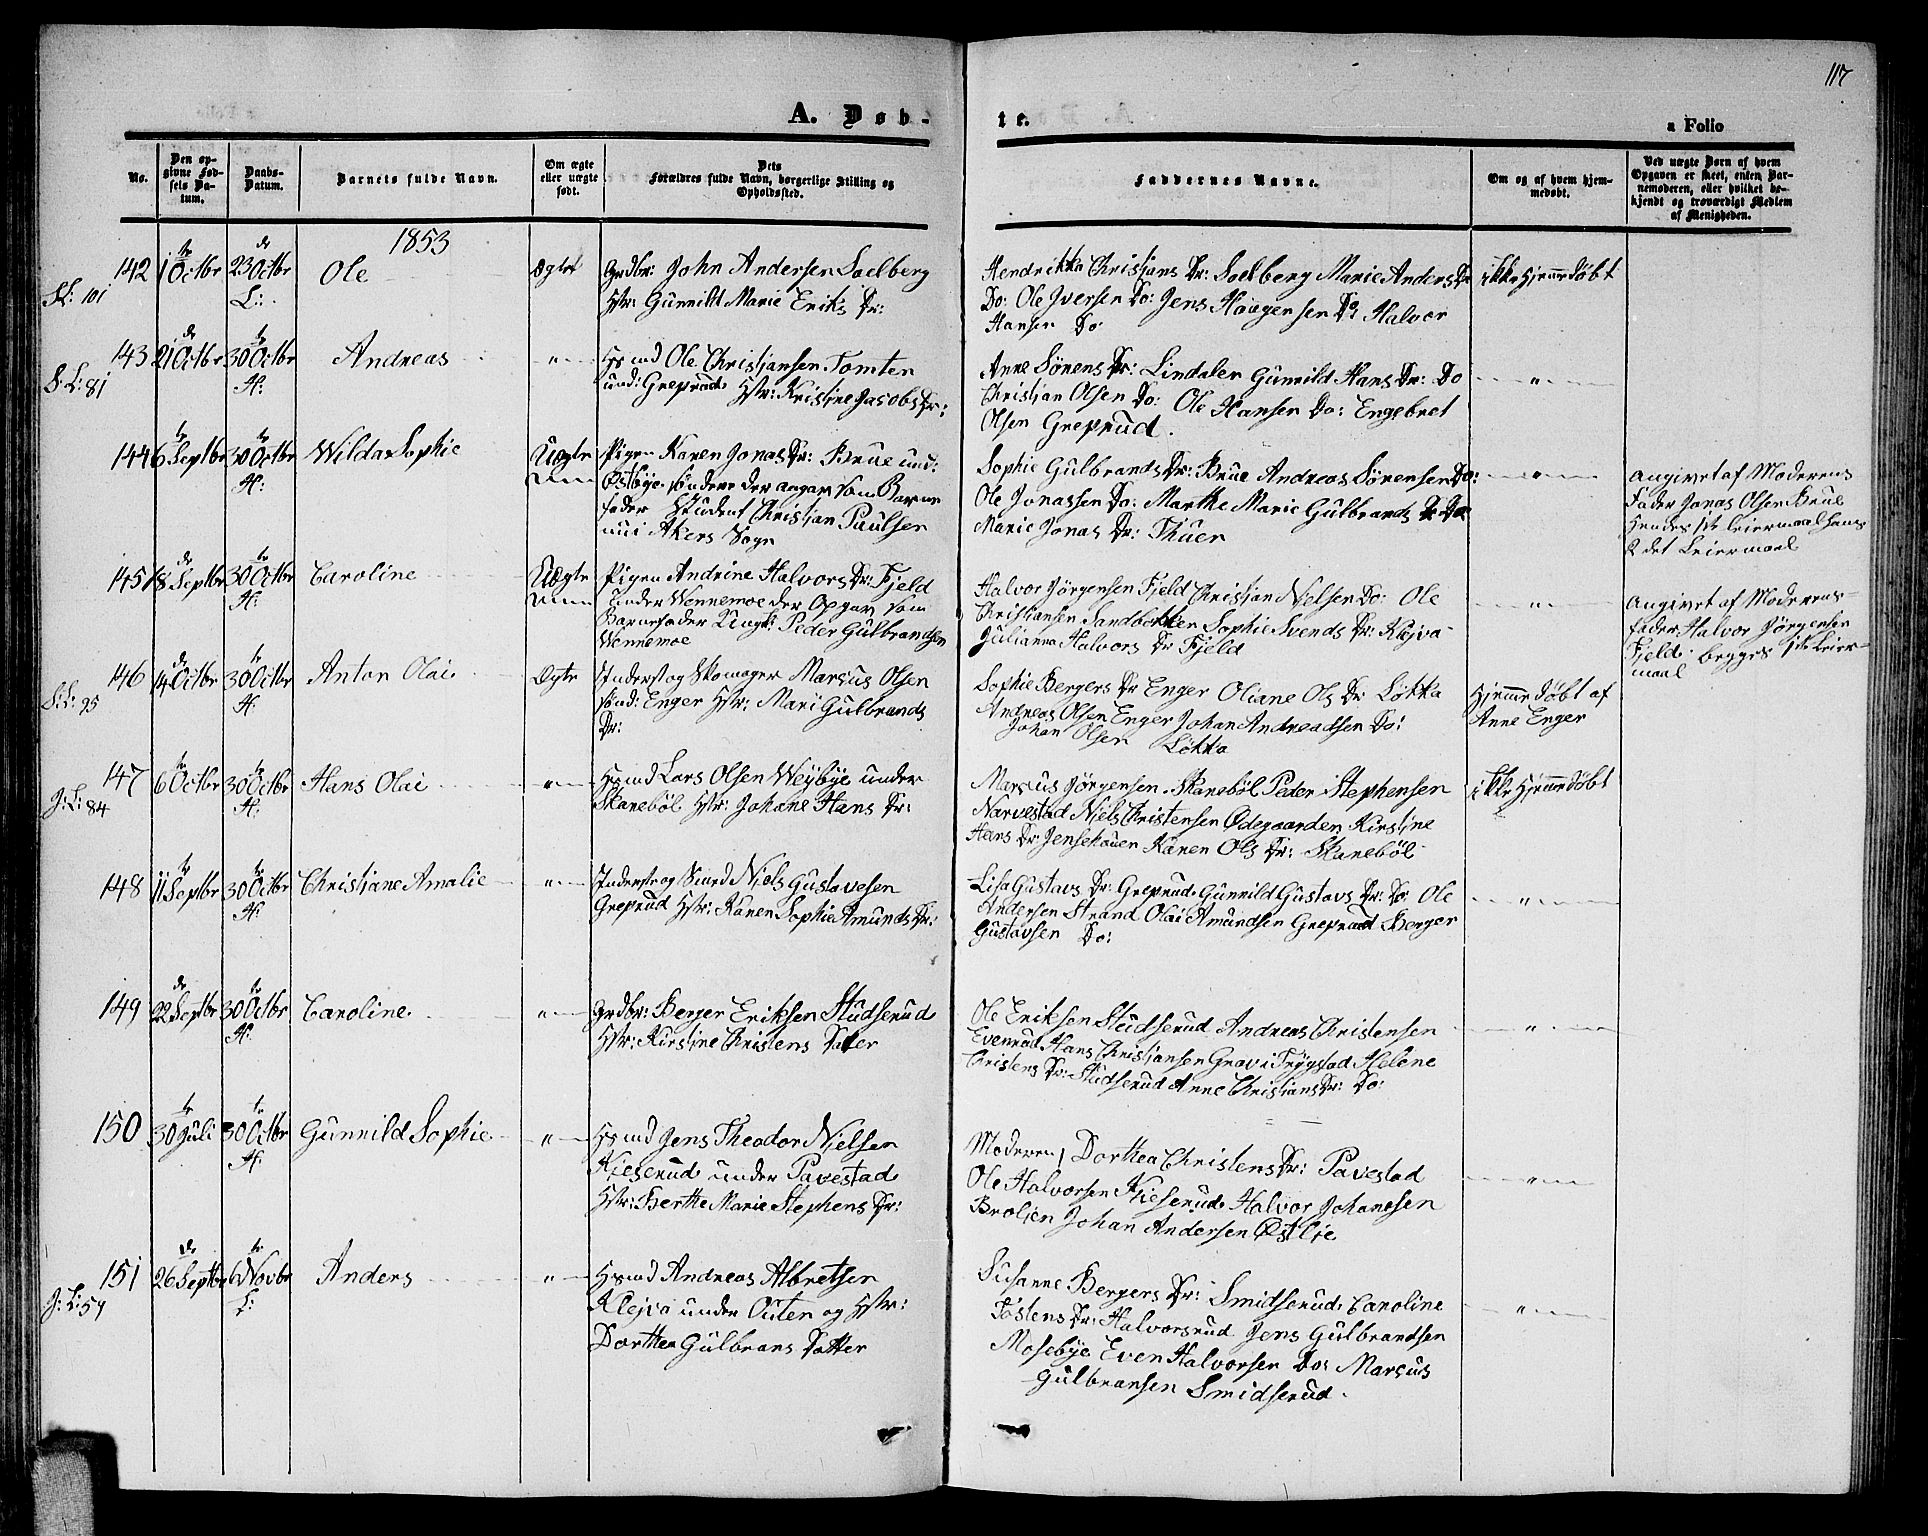 117
A. Døb-
te.
a Folio
No.
Den op-
givne Fød-
sels Da-
tum.
Daabs-
Datum.
Barnets fulde Navn.
Om ægte
eller uægte
født.
Dets
Forældres fulde Navn, borgerlige Stilling og
Opholdssted.
Faddernes Navne.
Om og af hvem hjem-
medøbt.
Ved uægte Børn af hvem
Opgaven er skeet, enten Bar-
nemoderen, eller hvilket be-
kjendt og troværdigt Medlem
af Menigheden.
1853
S:L: 101
142
1 Octbr
23 Octbr
L:
Ole
Ægte
Grdbr: John Andersen Soelberg
Hstr: Gunnild Marie Eriks Dr:
Hendrikka Christians Dr: Soelberg Marie Anders Dr
Do: Ole Iversen Do: Jens Haagensen Do Halvor
Hansen Do
ikke Hjemmedøbt
S:L: 81
143
21 Octbr
30 Octbr
H:
Andreas
"
Hsmd Ole Christjansen Tomten
und: Greprud Hstr: Kristine Jacobs Dr:
Anne Sörens Dr: Lindaler Gunnild Hans Dr: Do
Christjan Olsen Do: Ole Hansen Do: Engebret
Olsen Greprud.
"
144
6 Septbr
30 Octbr
H:
Wilda Sophie
Uægte
Pigen Karen Jonas Dr: Brue und:
Østbye söndre der angav som Barne
fader Student Christjan Paulsen
nu i Akers Sogn
Sophie Gulbrands Dr: Brue Andreas Sörensen Do:
Ole Jonassen Do: Marthe Marie Gulbrands Dr Do
Marie Jonas Dr: Thuer
"
Angivet af Moderens
Fader Jonas Olsen Brue
Hendes 1ste Leiermaal hans
2det Leiermaal
145
18 Septbr
30 Octbr
H:
Caroline
Uægte
Pigen Andrine Halvors Dr: Fjeld
under Wennemoe der Opgav som
Barnefader Ungk: Peder Gulbrandsen
Wennemoe
Halvor Jörgensen Fjeld Christjan Nielsen Do: Ole
Christiansen Sandbækken Sophie Svends Dr: Klejva
Julianna Halvors Dr Fjeld
"
Angivet af Moderens
fader Halvor Jörgensen
Fjeld begges 1ste Leier-
maal
S:L: 95
146
14 Octbr
30 Octbr
H:
Anton Olai
Ægte
Inderst og Skomager Marcus Olsen
sönd: Enger Hstr: Mari Gulbrands
Dr:
Sophie Bergers Dr Enger Oliane Ols Dr Løkka
Andreas Olsen Enger Johan Andreadsen Do:
Johan Olsen Løkka
Hjemmedøbt af
Anne Enger
J:L: 84
147
6 Octbr
30 Octbr
H:
Hans Olai
"
Hsmd Lars Olsen Weybye under
Skanebøl Hstr: Johane Hans Dr:
Marcus Jörgensen Skanebøl Peder Stephensen
Narvestad Niels Christensen Ødegaarden Kirstine
Hans Dr: Jensehauer Karen Ols Dr: Skanebøl
ikke Hjemmedøbt
148
11 Septbr
30 Octbr
H:
Christjane Amalie
"
Inderst og Smed Niels Gustavesen
Greprud Hstr: Karen Sophie Amunds Dr:
Lisa Gustavs Dr: Greprud Gunnild Gustavs Dr: Do Ole
Andersen Strand Olai Amundsen Greprud Berger
Gustavsen Do:
"
149
22 Septbr
30 Octbr
H:
Caroline
"
Grdbr: Berger Eriksen Studserud
Hstr: Kirstine Christens Dater
Ole Eriksen Studserud Andreas Christensen
Evenrud Hans Christjansen Grav i Trygstad Helene
Christens Dr: Studserud Anne Christians Dr: Do:
"
150
30 Juli
30 Octbr
H:
Gunnild Sophie
"
Hsmd Jens Theodor Nielsen
Kieserud under Pavestad
Hstr: Berthe Marie Stephens Dr:
Moderen, Dorthea Christens Dr: Pavestad
Ole Halvorsen Kieserud Halvor Johannesen
Broljen Johan Andersen Østlie
"
J:L: 59
151
26 Septbr
6 Novbr
L:
Anders
"
Hsmd Andreas Albretsen
Klejva under Outen og Hstr:
Dorthea Gulbrans Datter
Susanne Bergers Dr: Smidserud Caroline
Tostens Dr: Halvorsrud Jens Gulbrandsen
Mosebye Even Halvorsen Do: Marcus
Gulbransen Smidserud.
"